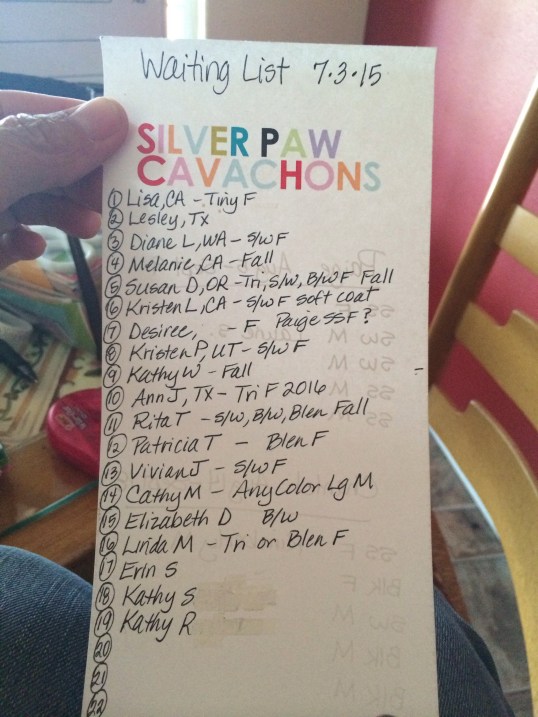 Waiting List 7.3.15
SILVER PAW
CAVACHONS
① Lisa, CA - Tiny F
② Lesley, TX
③ Diane L, WA - S/W F
④ Melanie, CA - Fall
⑤ Susan D, OR - Tri, S/W, B/W F Fall
⑥ Kristen L, CA - S/W F Soft coat
⑦ Desiree, - F Paige SS F?
⑧ Kristen P, UT - S/W F
⑨ Kathy W - Fall
⑩ Ann J, TX - Tri F 2016
⑪ Rita T - S/W, B/W, Blen Fall
⑫ Patricia T - Blen F
⑬ Vivian J - S/W F
⑭ Cathy M - Any Color Lg M
⑮ Elizabeth D B/W
⑯ Linda M - Tri or Blen F
⑰ Erin S
⑱ Kathy S
⑲ Kathy R
⑳
㉑
㉒